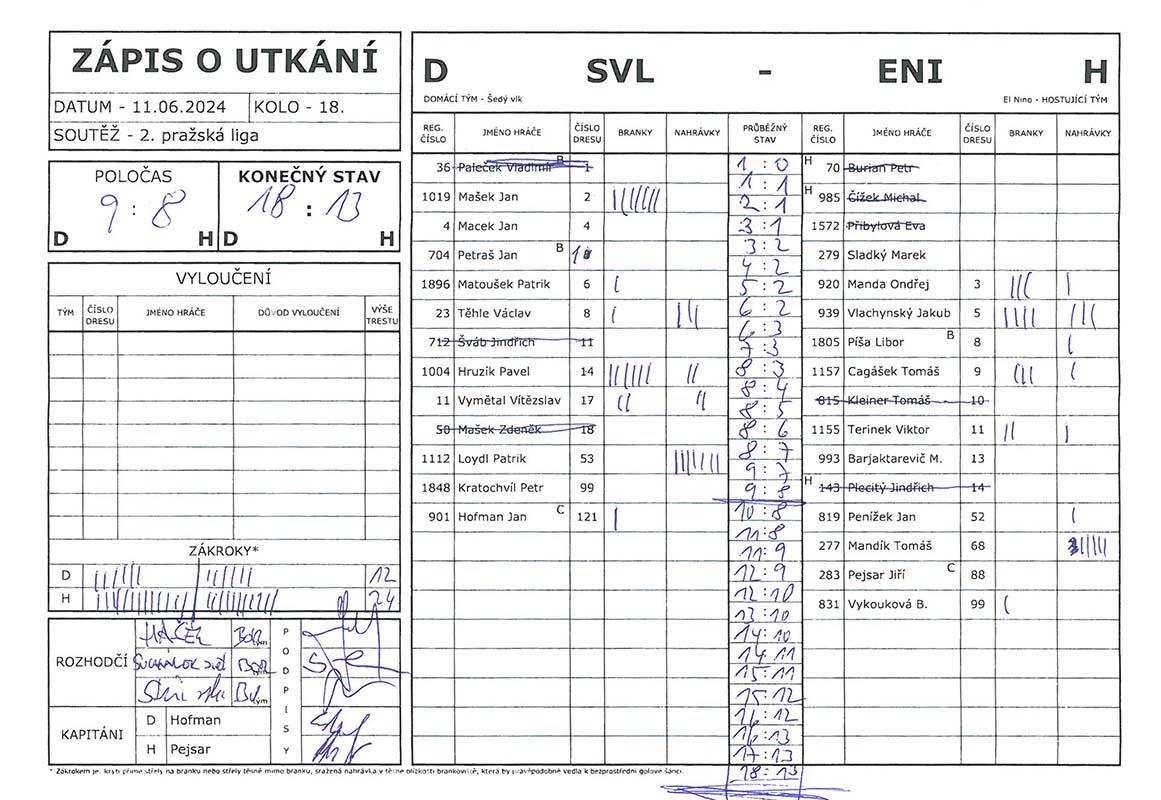 ZÁPIS O UTKÁNÍ
DATUM - 11.06.2024 KOLO - 18.
SOUTĚŽ - 2. pražská liga
POLOČAS KONEČNÝ STAV
9 : 8 18 : 13
D H D H
VYLOUČENÍ
TÝM ČÍSLO DRESU JMÉNO HRÁČE DŮVOD VYLOUČENÍ VÝŠE TRESTU
ZÁKROKY*
D 12
H 24
ROZHODČÍ
HÁČEK BOR tým
tým
tým
PODPISY
KAPITÁNI
D Hofman
H Pejsar
D SVL - ENI H
DOMÁCÍ TÝM - Šedý vlk El Nino - HOSTUJÍCÍ TÝM
REG. ČÍSLO JMÉNO HRÁČE ČÍSLO DRESU BRANKY NAHRÁVKY
36 Paleček Vladimír B 1
1019 Mašek Jan 2
4 Macek Jan 4
704 Petraš Jan B 1
1896 Matoušek Patrik 6
23 Těhle Václav 8
712 Šváb Jindřich 11
1004 Hruzík Pavel 14
11 Vymětal Vítězslav 17
50 Mašek Zdeněk 18
1112 Loydl Patrik 53
1848 Kratochvíl Petr 99
901 Hofman Jan C 121
PRŮBĚŽNÝ STAV
1 : 0
1 : 1
2 : 1
3 : 1
3 : 2
4 : 2
5 : 2
6 : 2
6 : 3
7 : 3
8 : 3
8 : 4
8 : 5
8 : 6
8 : 7
9 : 7
9 : 8
10 : 8
11 : 8
11 : 9
12 : 9
12 : 10
13 : 10
14 : 10
14 : 11
15 : 11
15 : 12
16 : 12
16 : 13
17 : 13
18 : 13
REG. ČÍSLO JMÉNO HRÁČE ČÍSLO DRESU BRANKY NAHRÁVKY
H 70 Burian Petr
H 985 Čížek Michal
1572 Přibylová Eva
279 Sladký Marek
920 Manda Ondřej 3
939 Vlachynský Jakub 5
1805 Píša Libor B 8
1157 Cagášek Tomáš 9
815 Kleiner Tomáš 10
1155 Terinek Viktor 11
993 Barjaktarevič M. 13
H 143 Plecitý Jindřich 14
819 Penížek Jan 52
277 Mandík Tomáš 68
283 Pejsar Jiří C 88
831 Vykouková B. 99
* Zákrokem je: krytí přímé střely na branku nebo střely těsně mimo branku, sražená nahrávka v těsné blízkosti brankoviště, která by pravděpodobně vedla k bezprostřední gólové šanci.